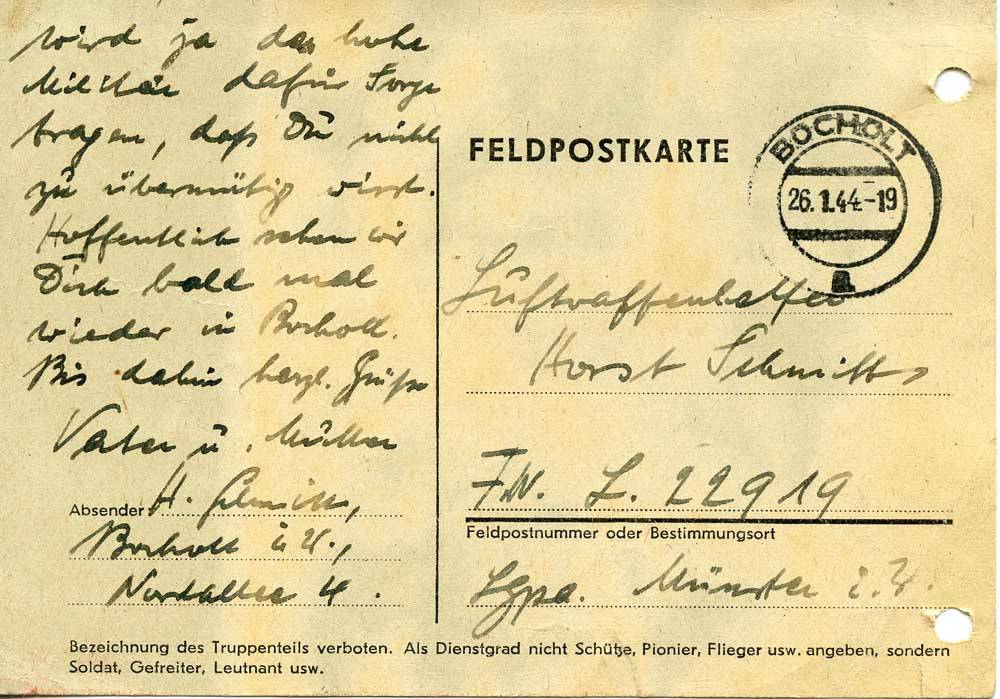 wird ja das hohe
Militär dafür Sorge
tragen, daß Du nicht
zu übermütig wirst.
Hoffentlich sehen wir
Dich bald mal
wieder in Bocholt.
Bis dahin herzl. Grüße
Vater u. Mutter
Absender H. Schmitts,
Bocholt i. W.,
Nordallee 4.
FELDPOSTKARTE
BOCHOLT
26.1.44-19
a
Luftwaffenhelfer
Horst Schmitts
F.N. L. 22919
Feldpostnummer oder Bestimmungsort
Lgpa. Münster i. W.
Bezeichnung des Truppenteils verboten. Als Dienstgrad nicht Schütze, Pionier, Flieger usw. angeben, sondern
Soldat, Gefreiter, Leutnant usw.